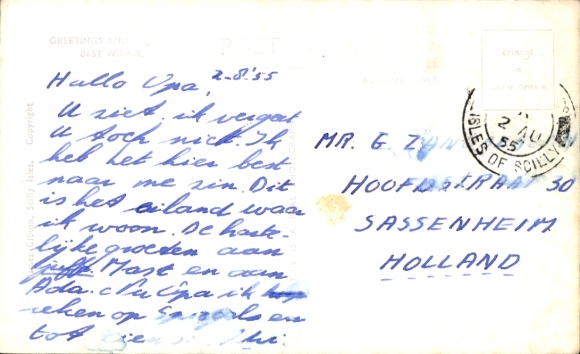 GREETINGS AND
BEST
Hallo Opa, 2-8-'55
U ziet, ik vergeet
U toch niet. Ik
heb het hier best
naar me zin. Dit
is het eiland waar
ik woon. De harte-
lijke groeten aan
Mast en aan
Ada. Nu Opa ik
reken op en
tot ziens
MR. G.
HOOFDSTRAAT 30
SASSENHEIM
HOLLAND
2 AU
55
ISLES OF SCILLY
Gibson, Scilly Isles. Copyright